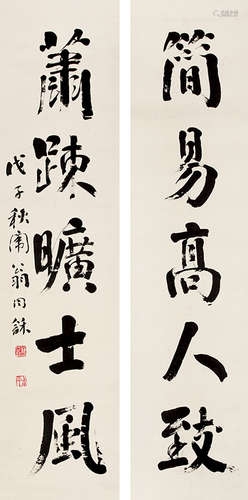 簡易高人致
蕭疎曠士風
戊子秋甫翁同龢